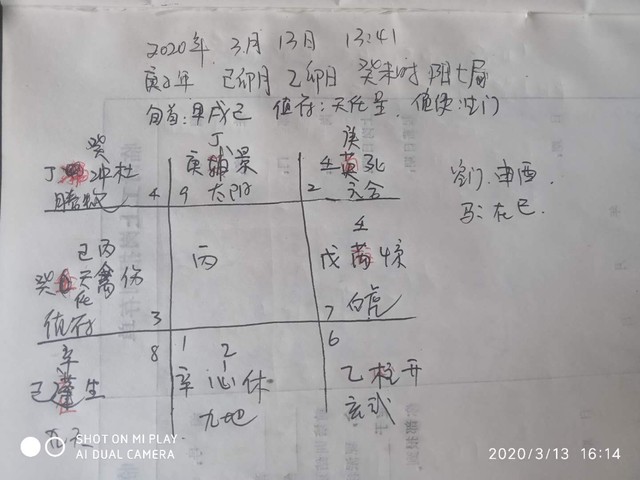 2020年 3月 13日 13:41
庚子年 己卯月 乙卯日 癸未时 阳七局
旬首:甲戌己 值符:天任星 值使:生门
癸
丁 冲杜
4
丁
庚 辅景
9 太阴
庚
壬 英死
2 六合
空门:申酉
马:在巳
己丙
癸 天禽伤
任
值符
3
丙
壬
戊 芮惊
7 白虎
辛
8
己 蓬生
九天
1 乙
辛 心休
九地
6
乙柱开
玄武
SHOT ON MI PLAY
AI DUAL CAMERA
2020/3/13 16:14